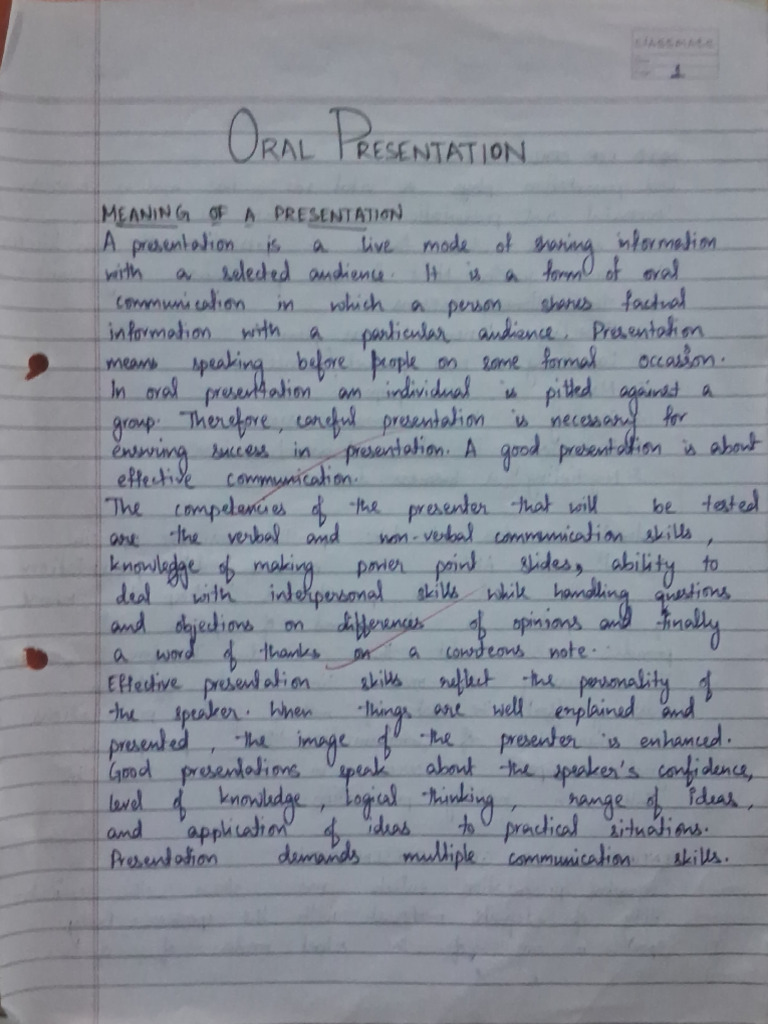 classmate
1
ORAL PRESENTATION
MEANING OF A PRESENTATION
A presentation is a live mode of sharing information
with a selected audience. It is a form of oral
communication in which a person shares factual
information with a particular audience. Presentation
means speaking before people on some formal occasion.
In oral presentation an individual is pitted against a
group. Therefore, careful presentation is necessary for
ensuring success in presentation. A good presentation is about
effective communication.
The competencies of the presenter that will be tested
are the verbal and non-verbal communication skills,
knowledge of making power point slides, ability to
deal with interpersonal skills while handling questions
and objections on differences of opinions and finally
a word of thanks on a courteous note.
Effective presentation skills reflect the personality of
the speaker. When things are well explained and
presented, the image of the presenter is enhanced.
Good presentations speak about the speaker's confidence,
level of knowledge, logical thinking, range of ideas,
and application of ideas to practical situations.
Presentation demands multiple communication skills.